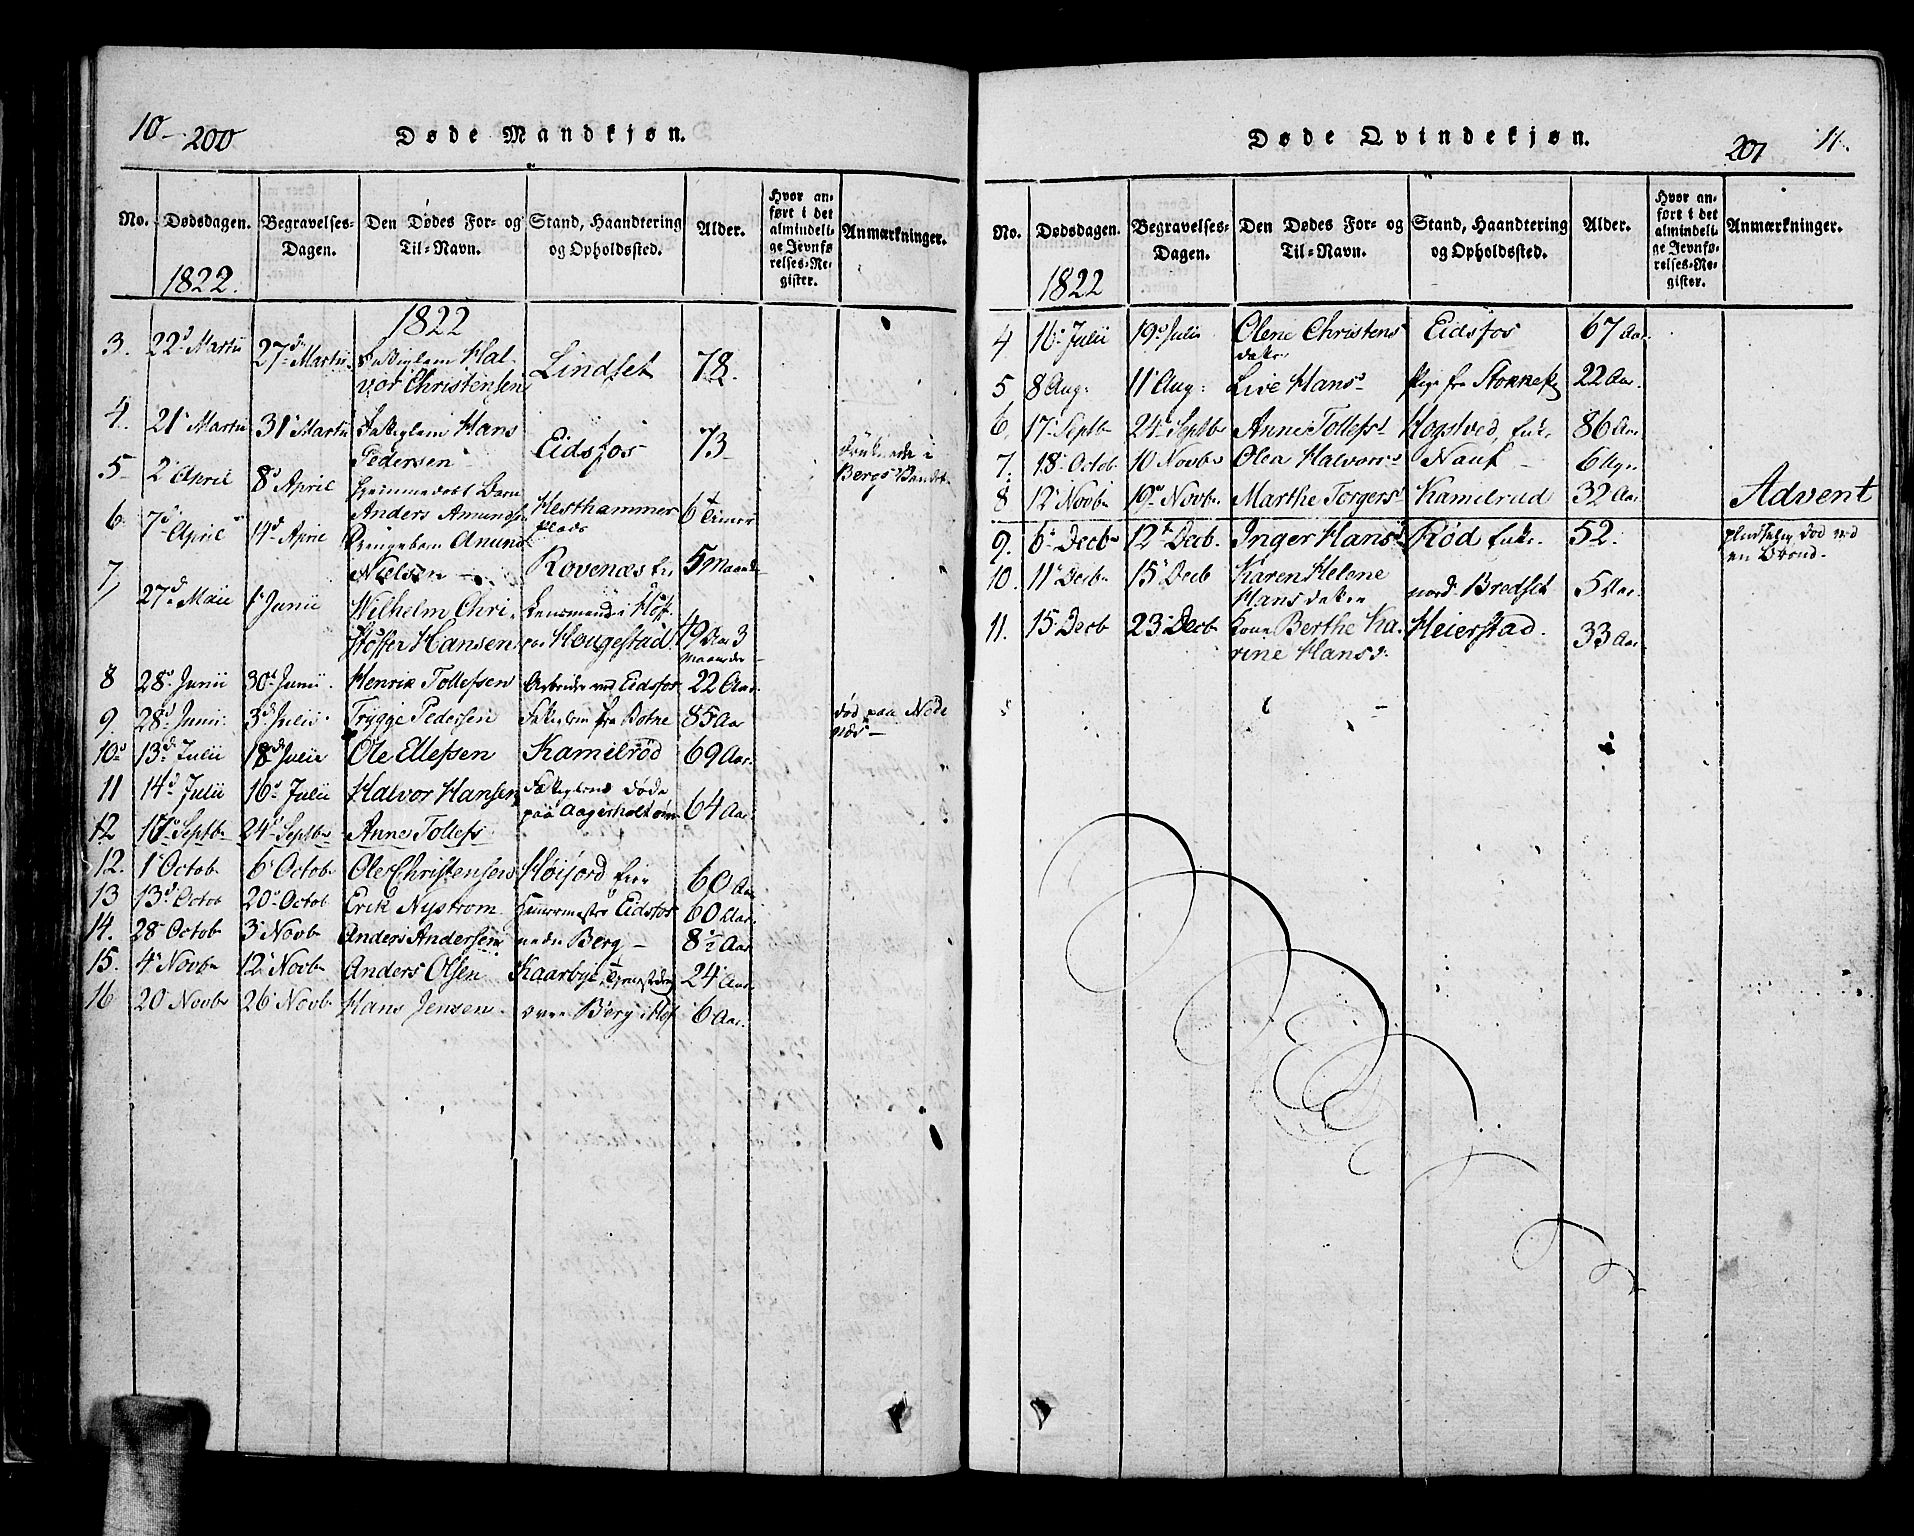 10 - 200
Døde Mandkjøn.
No. Dødsdagen. Begravelses-Dagen. Den Dødes For- og Til-Navn. Stand, Haandtering og Opholdssted. Alder. Hvor anført i det almindelige Jevnførelses-Register. Anmærkninger.
1822.
1822
3. 22d Martii 27d Martii Hal-
vor Christensen Lindset 78.
4. 21 Martii 31 Martii Hans
Pedersen Eidsfos 73
5 2 April 8d April Barn i
Anders Amunds. Hesthammer 6 Bergs Vandet
6. 7d April 14d April Amund plads
Nielsen Rovenæs 5 Maan
7, 27d Maii 1 Junii Wilhelm Chri- Lensmand i Hof
stoffer Hansen Hougestad 49 Aar 3
Maaneder
8 28d Junii 30d Junii. Henrik Tollefsen Arbeider ved Eidsfos 22 Aar.
9. 28d Junii 3d Julii Trygge Pedersen fra Botne 85 Aar død paa Nøde
næs
10d 13d Julii 18d Julii Ole Ellefsen Kamelrød 69 Aar.
11 14d Julii 16d Julii Halvor Hansen døde
paa Aagerholt 64 Aar
12 17 Septb 24 Septbr Anne Tollefs
12. 1 Octob 6 Octob Ole Christensen Høijord 60 Aar
13 13d Octob 20 Octob Erik Nystrom Eidsfos 60 Aar
14. 28 Octob 3 Novb Anders Andersen nedre Berg 8½ Aar
15. 4 Novb 12 Novb Anders Olsen Kaarbye 24 Aar
16 20 Novb 26 Novb Hans Jensen øvre Berg i Hof 6 Aar.
Døde Qvindekjøn.
201 11.
No. Dødsdagen. Begravelses-Dagen. Den Dødes For- og Til-Navn. Stand, Haandtering og Opholdssted. Alder. Hvor anført i det almindelige Jevnførelses-Register. Anmærkninger.
1822
4 16 Julii 19d Julii Olene Christens Eidsfos 67 Aar
datter
5 8 Aug: 11 Aug: Live Hans Pige fra 22 Aar.
6. 17 Septb 24 Septb Anne Tollefs Hogstved, Enke 86 Aar
7. 18 Octob 10 Novb Olea Halvors Nauf 6 Ugr
8 12 Novb 19 Novb Marthe Torgers Kamelrud 32 Aar Advent
9. 6 Decb 12 Decb. Inger Hans Rød Enke 52. pludselig død ved
en
10. 11 Decb 15 Decb Karen Helene nord. Bredset 5 Aar
Hans datter
11. 15 Decb 23 Decb Kone Berthe Ka- Heierstad. 33 Aar
rine Hansd.